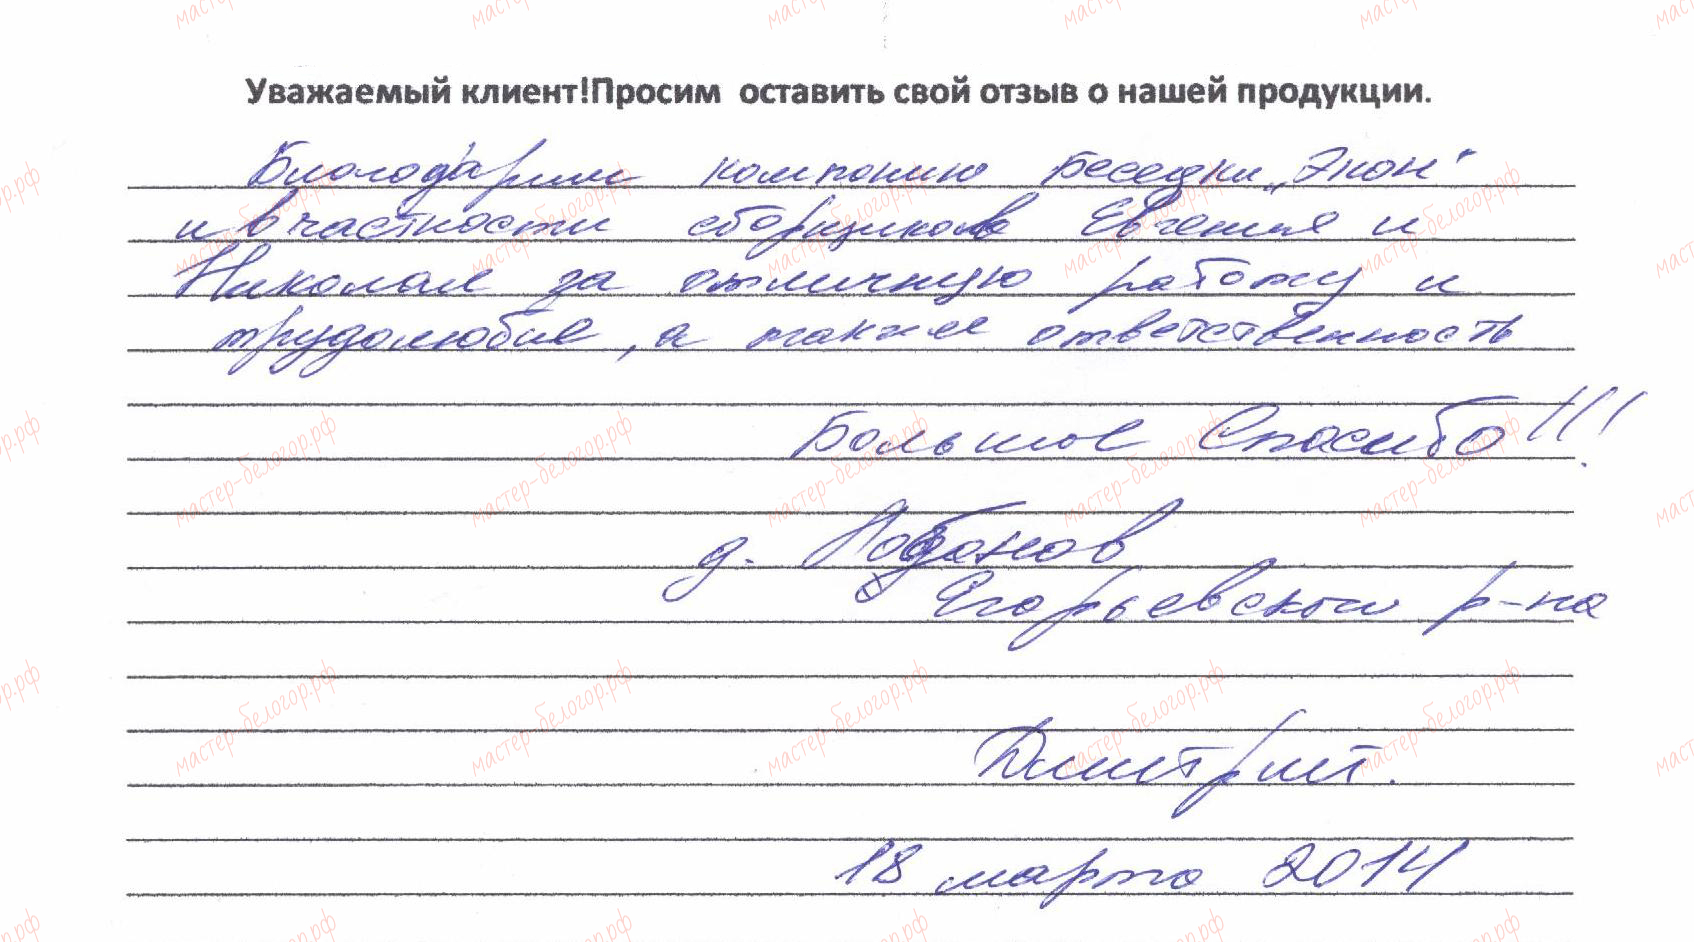 Уважаемый клиент!Просим оставить свой отзыв о нашей продукции.
Благодарим компанию Беседки „Экон"
и в частности сборщиков Евгения и
Николая за отличную работу и
трудолюбие, а также ответственность
Большое Спасибо!!!
д.
Егорьевский р-на
Дмитрий.
18 марта 2014
мастер-белогор.рф